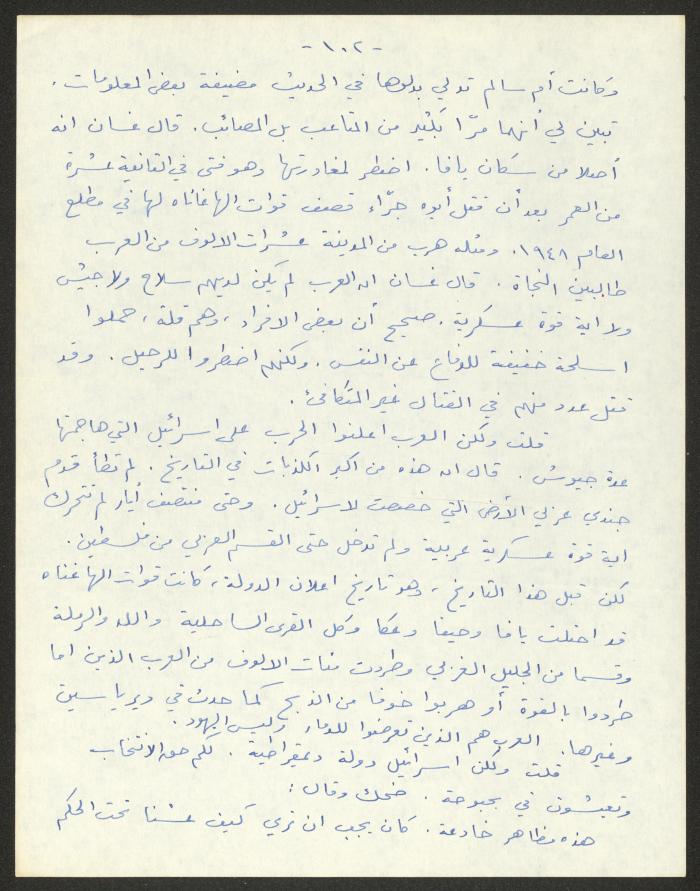 -١٠٢-
وكانت أم سالم تدلي بدلوها في الحديث مضيفة بعض المعلومات.
تبين لي أنهما مرّا بكثير من المتاعب بل المصائب. قال غسان انه
أصلا من سكان يافا. اضطر لمغادرتها وهو فتى في الثانية عشرة
من العمر بعد أن قتل أبوه جرّاء قصف قوات الهاغاناه لها في مطلع
العام ١٩٤٨. ومثله هرب من المدينة عشرات الالوف من العرب
طالبين النجاة. قال غسان ان العرب لم يكن لديهم سلاح ولا جيش
ولا اية قوة عسكرية. صحيح أن بعض الافراد، وهم قلة، حملوا
اسلحة خفيفة للدفاع عن النفس. ولكنهم اضطروا للرحيل. وقد
قتل عدد منهم في القتال غير المتكافئ.
قلت ولكن العرب اعلنوا الحرب على اسرائيل التي هاجمتها
عدة جيوش. قال ان هذه من اكبر الكذبات في التاريخ. لم تطأ قدم
جندي عربي الأرض التي خصصت لاسرائيل. وحتى منتصف أيار لم تتحرك
اية قوة عسكرية عربية ولم تدخل حتى القسم العربي من فلسطين.
لكن قبل هذا التاريخ، وهو تاريخ اعلان الدولة، كانت قوات الهاغناه
قد احتلت يافا وحيفا وعكا وكل القرى الساحلية واللد والرملة
وقسما من الجليل الغربي وطردت مئات الالوف من العرب الذين اما
طردوا بالقوة أو هربوا خوفا من الذبح كما حدث في دير ياسين
وغيرها. العرب هم الذين تعرضوا للدمار وليس اليهود.
قلت ولكن اسرائيل دولة ديمقراطية. لكم حق الانتخاب
وتعيشون في بحبوحة. ضحك وقال:
هذه مظاهر خادعة. كان يجب ان تري كيف عشنا تحت الحكم